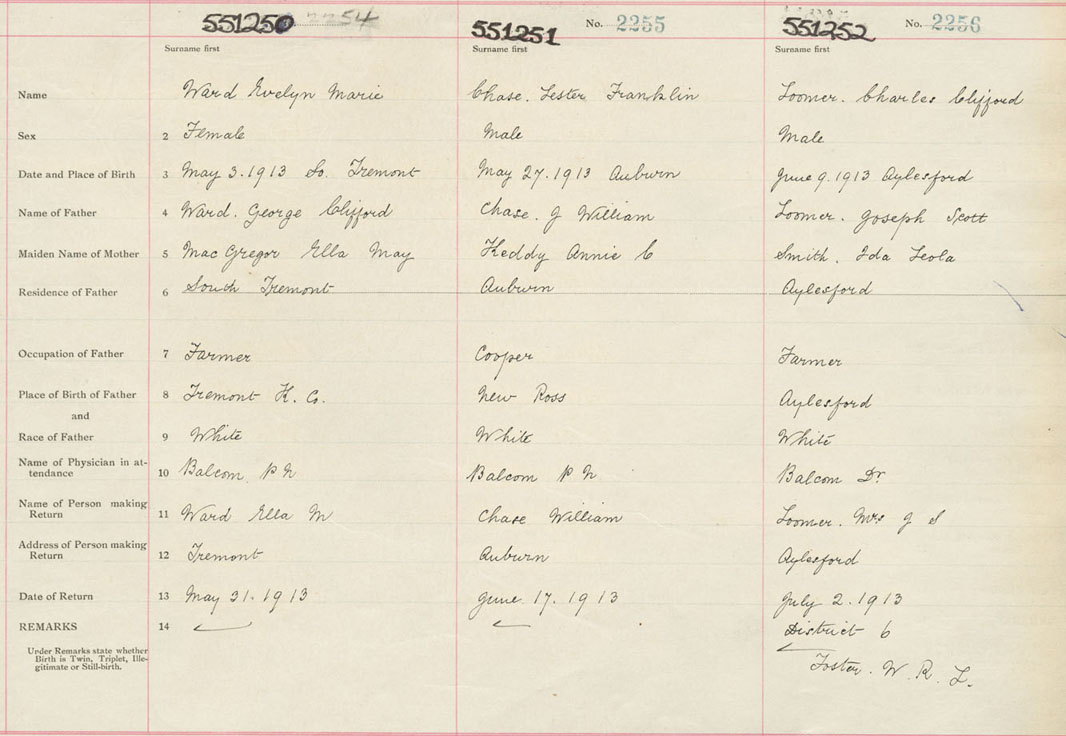 551250 2254
551251 No. 2255
551252 No. 2256
Surname first Surname first Surname first
Name Ward Evelyn Marie Chase. Lester Franklin Loomer. Charles Clifford
Sex 2 Female Male Male
Date and Place of Birth 3 May 3. 1913 So. Tremont May 27. 1913 Auburn June 9. 1913 Aylesford
Name of Father 4 Ward. George Clifford Chase. J William Loomer. Joseph Scott
Maiden Name of Mother 5 MacGregor Ella May Keddy Annie C Smith. Ida Leola
Residence of Father 6 South Tremont Auburn Aylesford
Occupation of Father 7 Farmer Cooper Farmer
Place of Birth of Father 8 Tremont K. Co. New Ross Aylesford
and
Race of Father 9 White White White
Name of Physician in at-
tendance 10 Balcom P N Balcom P N Balcom Dr
Name of Person making
Return 11 Ward Ella M Chase William Loomer. Mrs J S
Address of Person making
Return 12 Tremont Auburn Aylesford
Date of Return 13 May 31. 1913 June. 17. 1913 July 2. 1913
REMARKS 14 District 6
Under Remarks state whether
Birth is Twin, Triplet, Ille-
gitimate or Still-birth.
Foster. W. R. L.